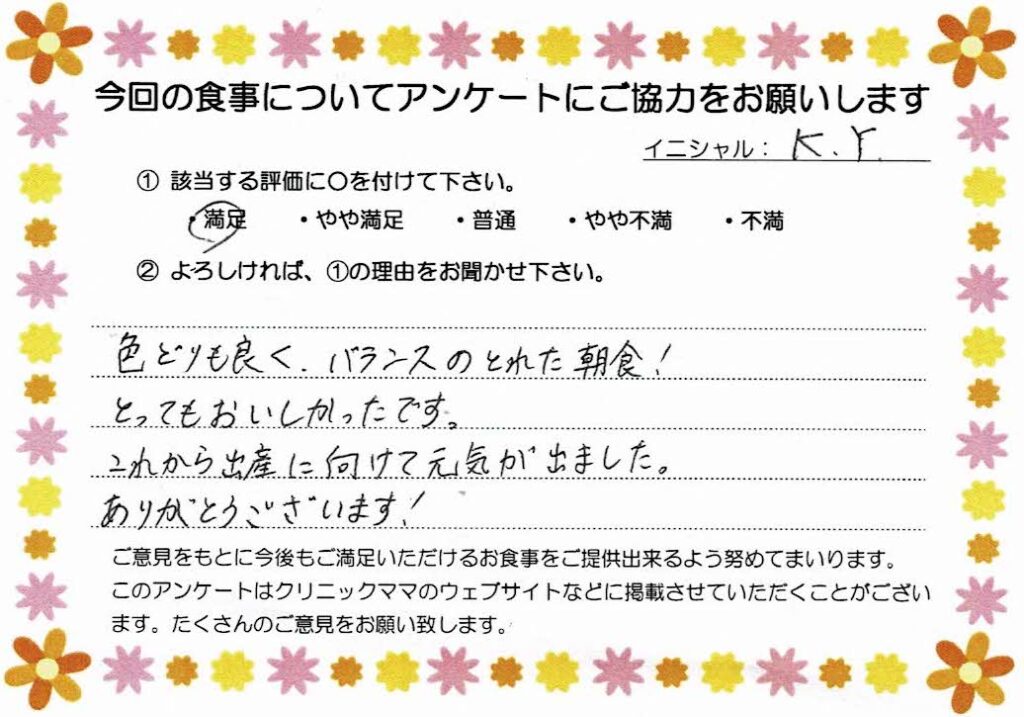 今回の食事についてアンケートにご協力をお願いします
イニシャル： K.Y.
① 該当する評価に〇を付けて下さい。
・満足 ・やや満足 ・普通 ・やや不満 ・不満
② よろしければ、①の理由をお聞かせ下さい。
色どりも良く、バランスのとれた朝食！
とってもおいしかったです。
これから出産に向けて元気が出ました。
ありがとうございます！
ご意見をもとに今後もご満足いただけるお食事をご提供出来るよう努めてまいります。
このアンケートはクリニックママのウェブサイトなどに掲載させていただくことがござい
ます。たくさんのご意見をお願い致します。